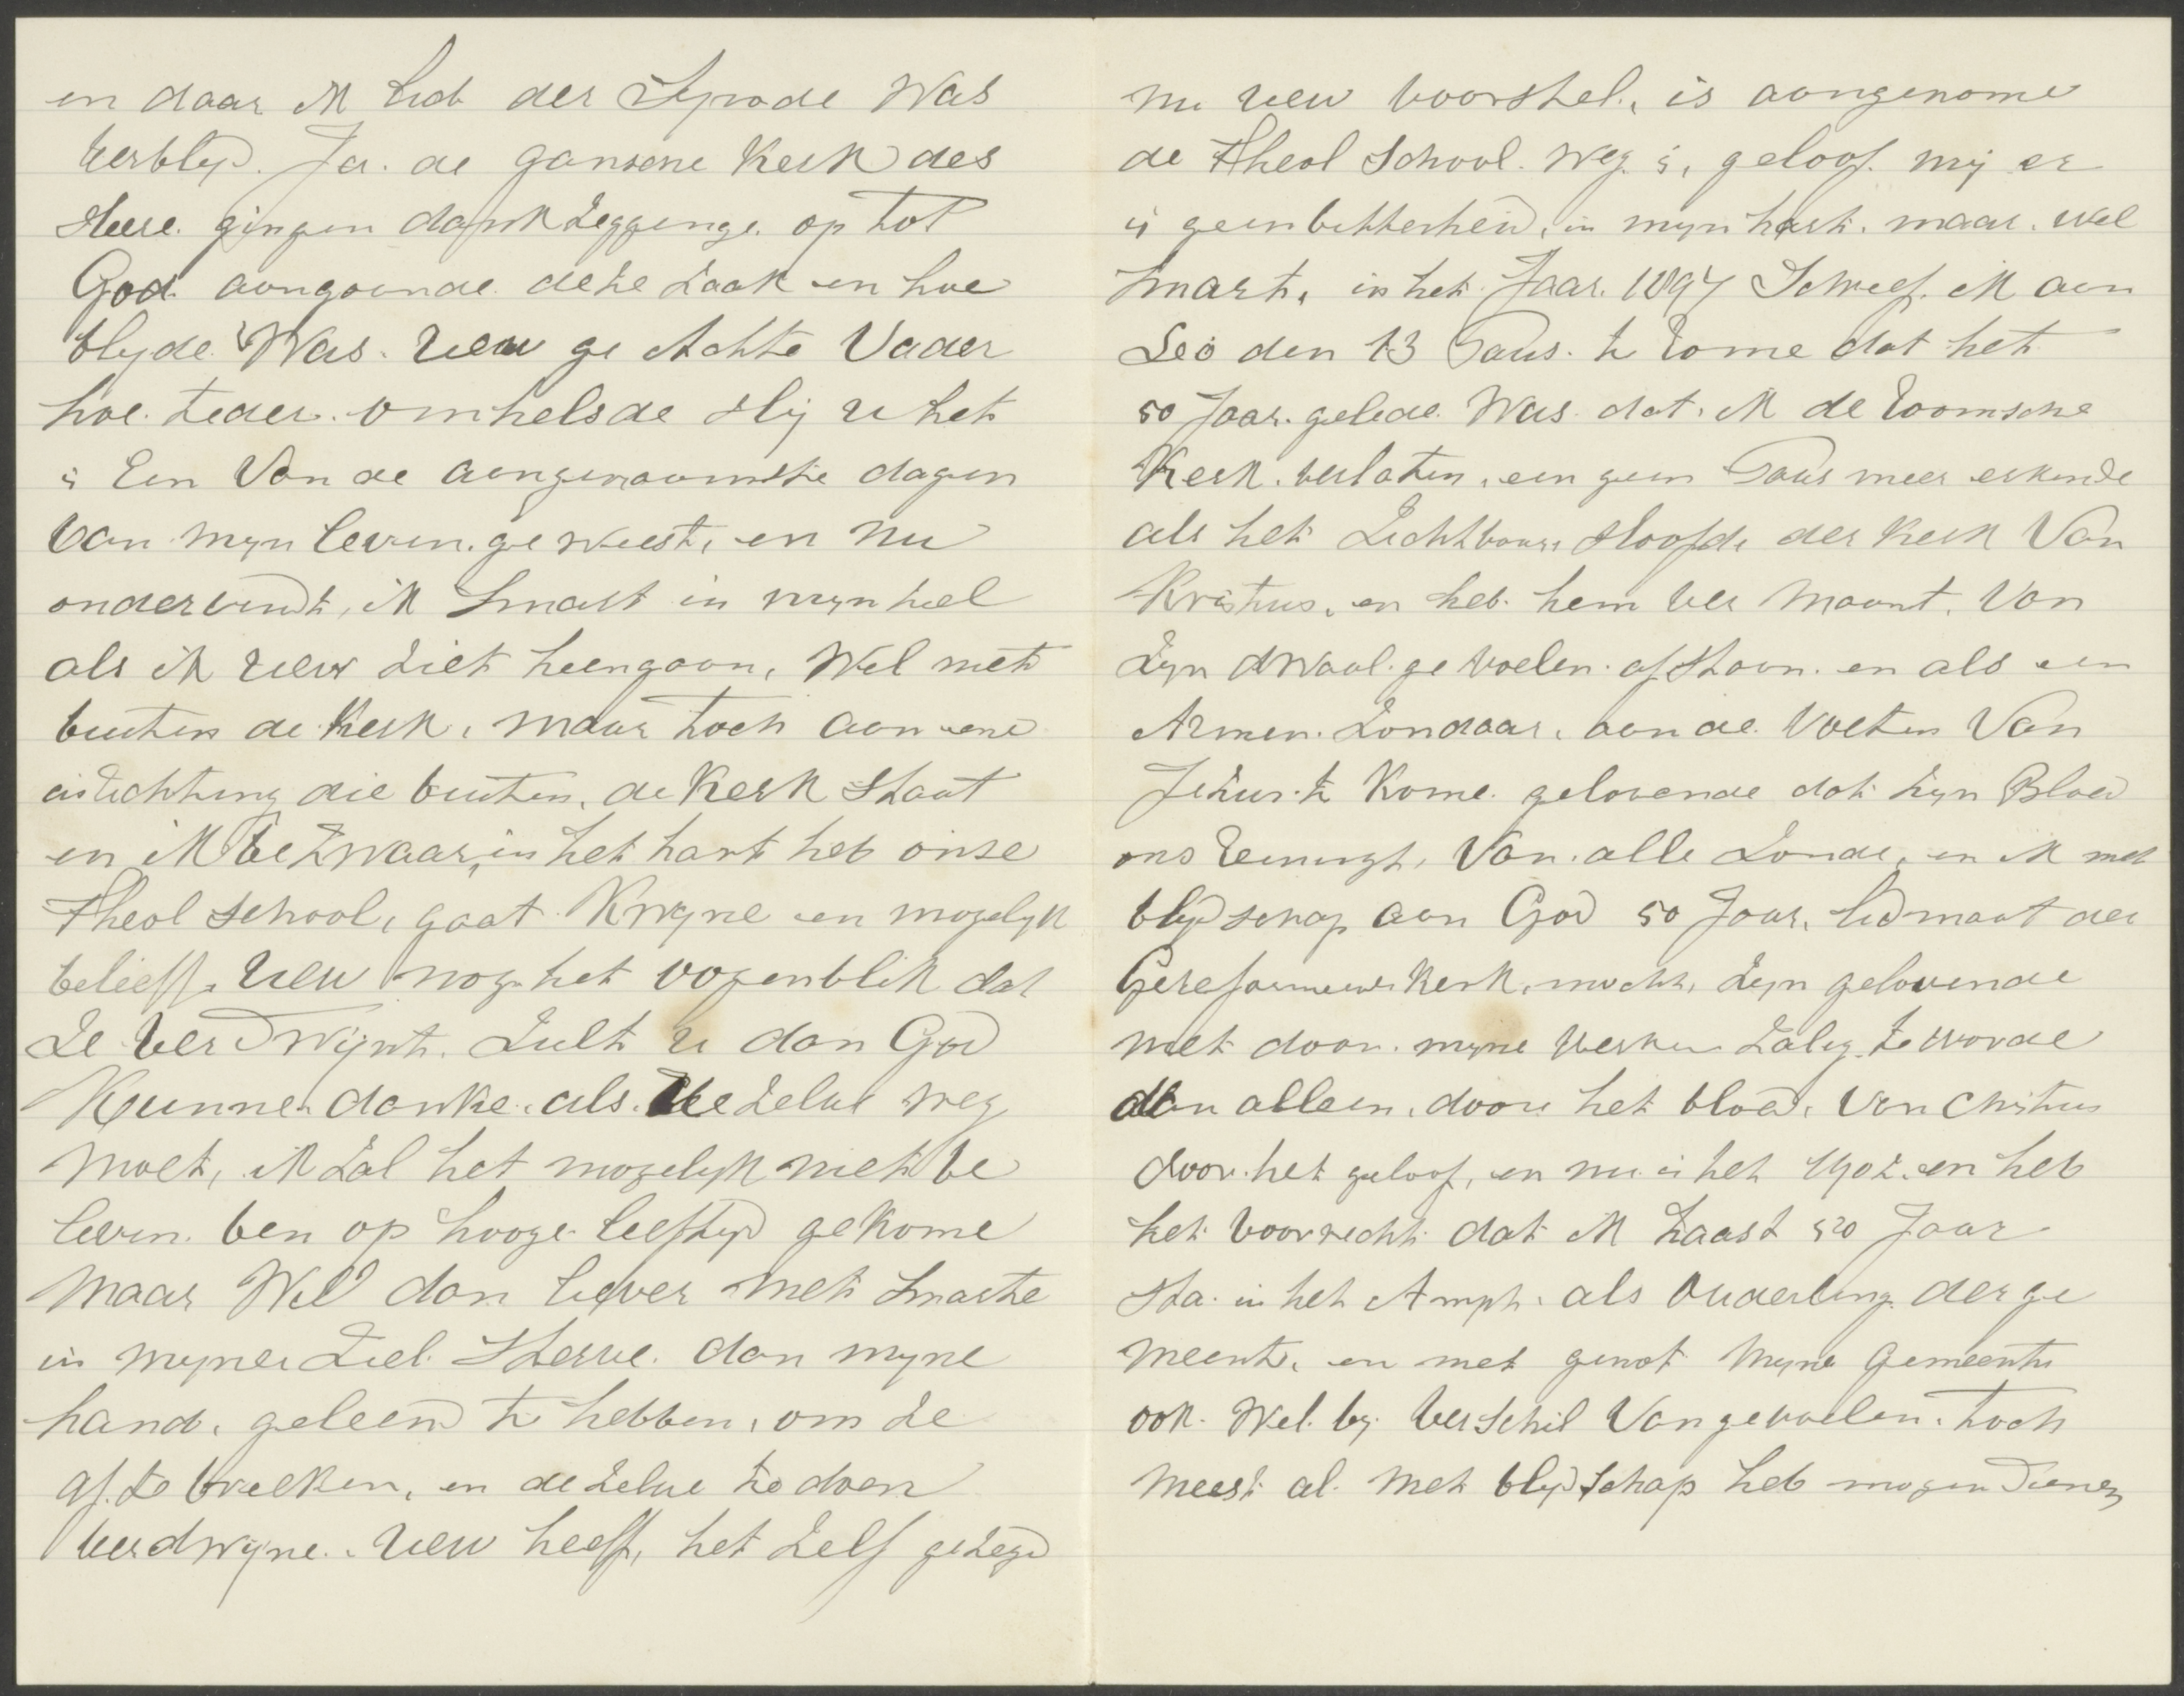 en daar ik Lid der Synode Was
verblyd. Ja. de gansche Kerk des
Heere. gingen dankzeggenge. op tot
God. aangaande. deze zaak en hoe
blyde. Was. Uew ge Achte Vader
hoe. teder. omhelsde Hij u het
is Een Van de aangenaamste dagen
van myn leven. ge weest, en nu
ondervindt, ik Smart in myn ziel
als ik uew ziet heengaan, Wel niet
buiten de Kerk, maar toch aan eene
inlichting die buiten, de Kerk Staat
en ik bezwaar, in het hart heb onse
Theol School, gaat Kwyne en mogelyk
beleeft. Uew nog het oogenblik dat
Ze verdwijnt. Zult u dan God
Kunnen danke. als. de zelve weg
moet, ik Zal het mogelyk niet be
leven. ben op hooge leeftyd gekome
maar Wil dan liever met Smarte
in myne Ziel. Sterve. dan myne
hand. geleend te hebben, om ze
af. te breeken, en de zelve te doen
verdwyne. Uew heeft, het zelf gezegd
nu uew voorstel. is aangenome
de Theol School. weg. is, geloof. mij er
is geen bitterheid, in myn hart. maar. wel
Smart, in het Jaar. 1897 Schreef. ik aan
Leo den 13 Paus. te Rome dat het
50 Jaar. gelede. Was. dat. ik de Roomsche
Kerk. verlaten, een geen Paus meer erkende
als het Zichtbaar, Hoofd, der Kerk Van
Kristus, en heb. hem ver maant. Van
Zyn dwaal. ge voelen. af staan. en als een
Armen. Zondaar, aan de. Voeten Van
Jezus. te Kome. gelovende dat zyn Bloed
ons Reinigt, Van. alle Zonde, en ik met
blydschap aan God 50 Jaar, lidmaat der
Gereformeerde Kerk, mocht, Zyn gelovende
niet door. myne Werken Zalig te worde
dan alleen, door het bloed, Van Christus
door. het geloof, en nu is het 1902. en heb
het voorrecht dat ik haast 50 Jaar
Sta. in het Ampt. als Ouderling. der ge
meente, en met genot Myne Gemeente
ook. Wel. by. verschil Van gevoelen. toch
meest al. met blydschap heb mogen dienen